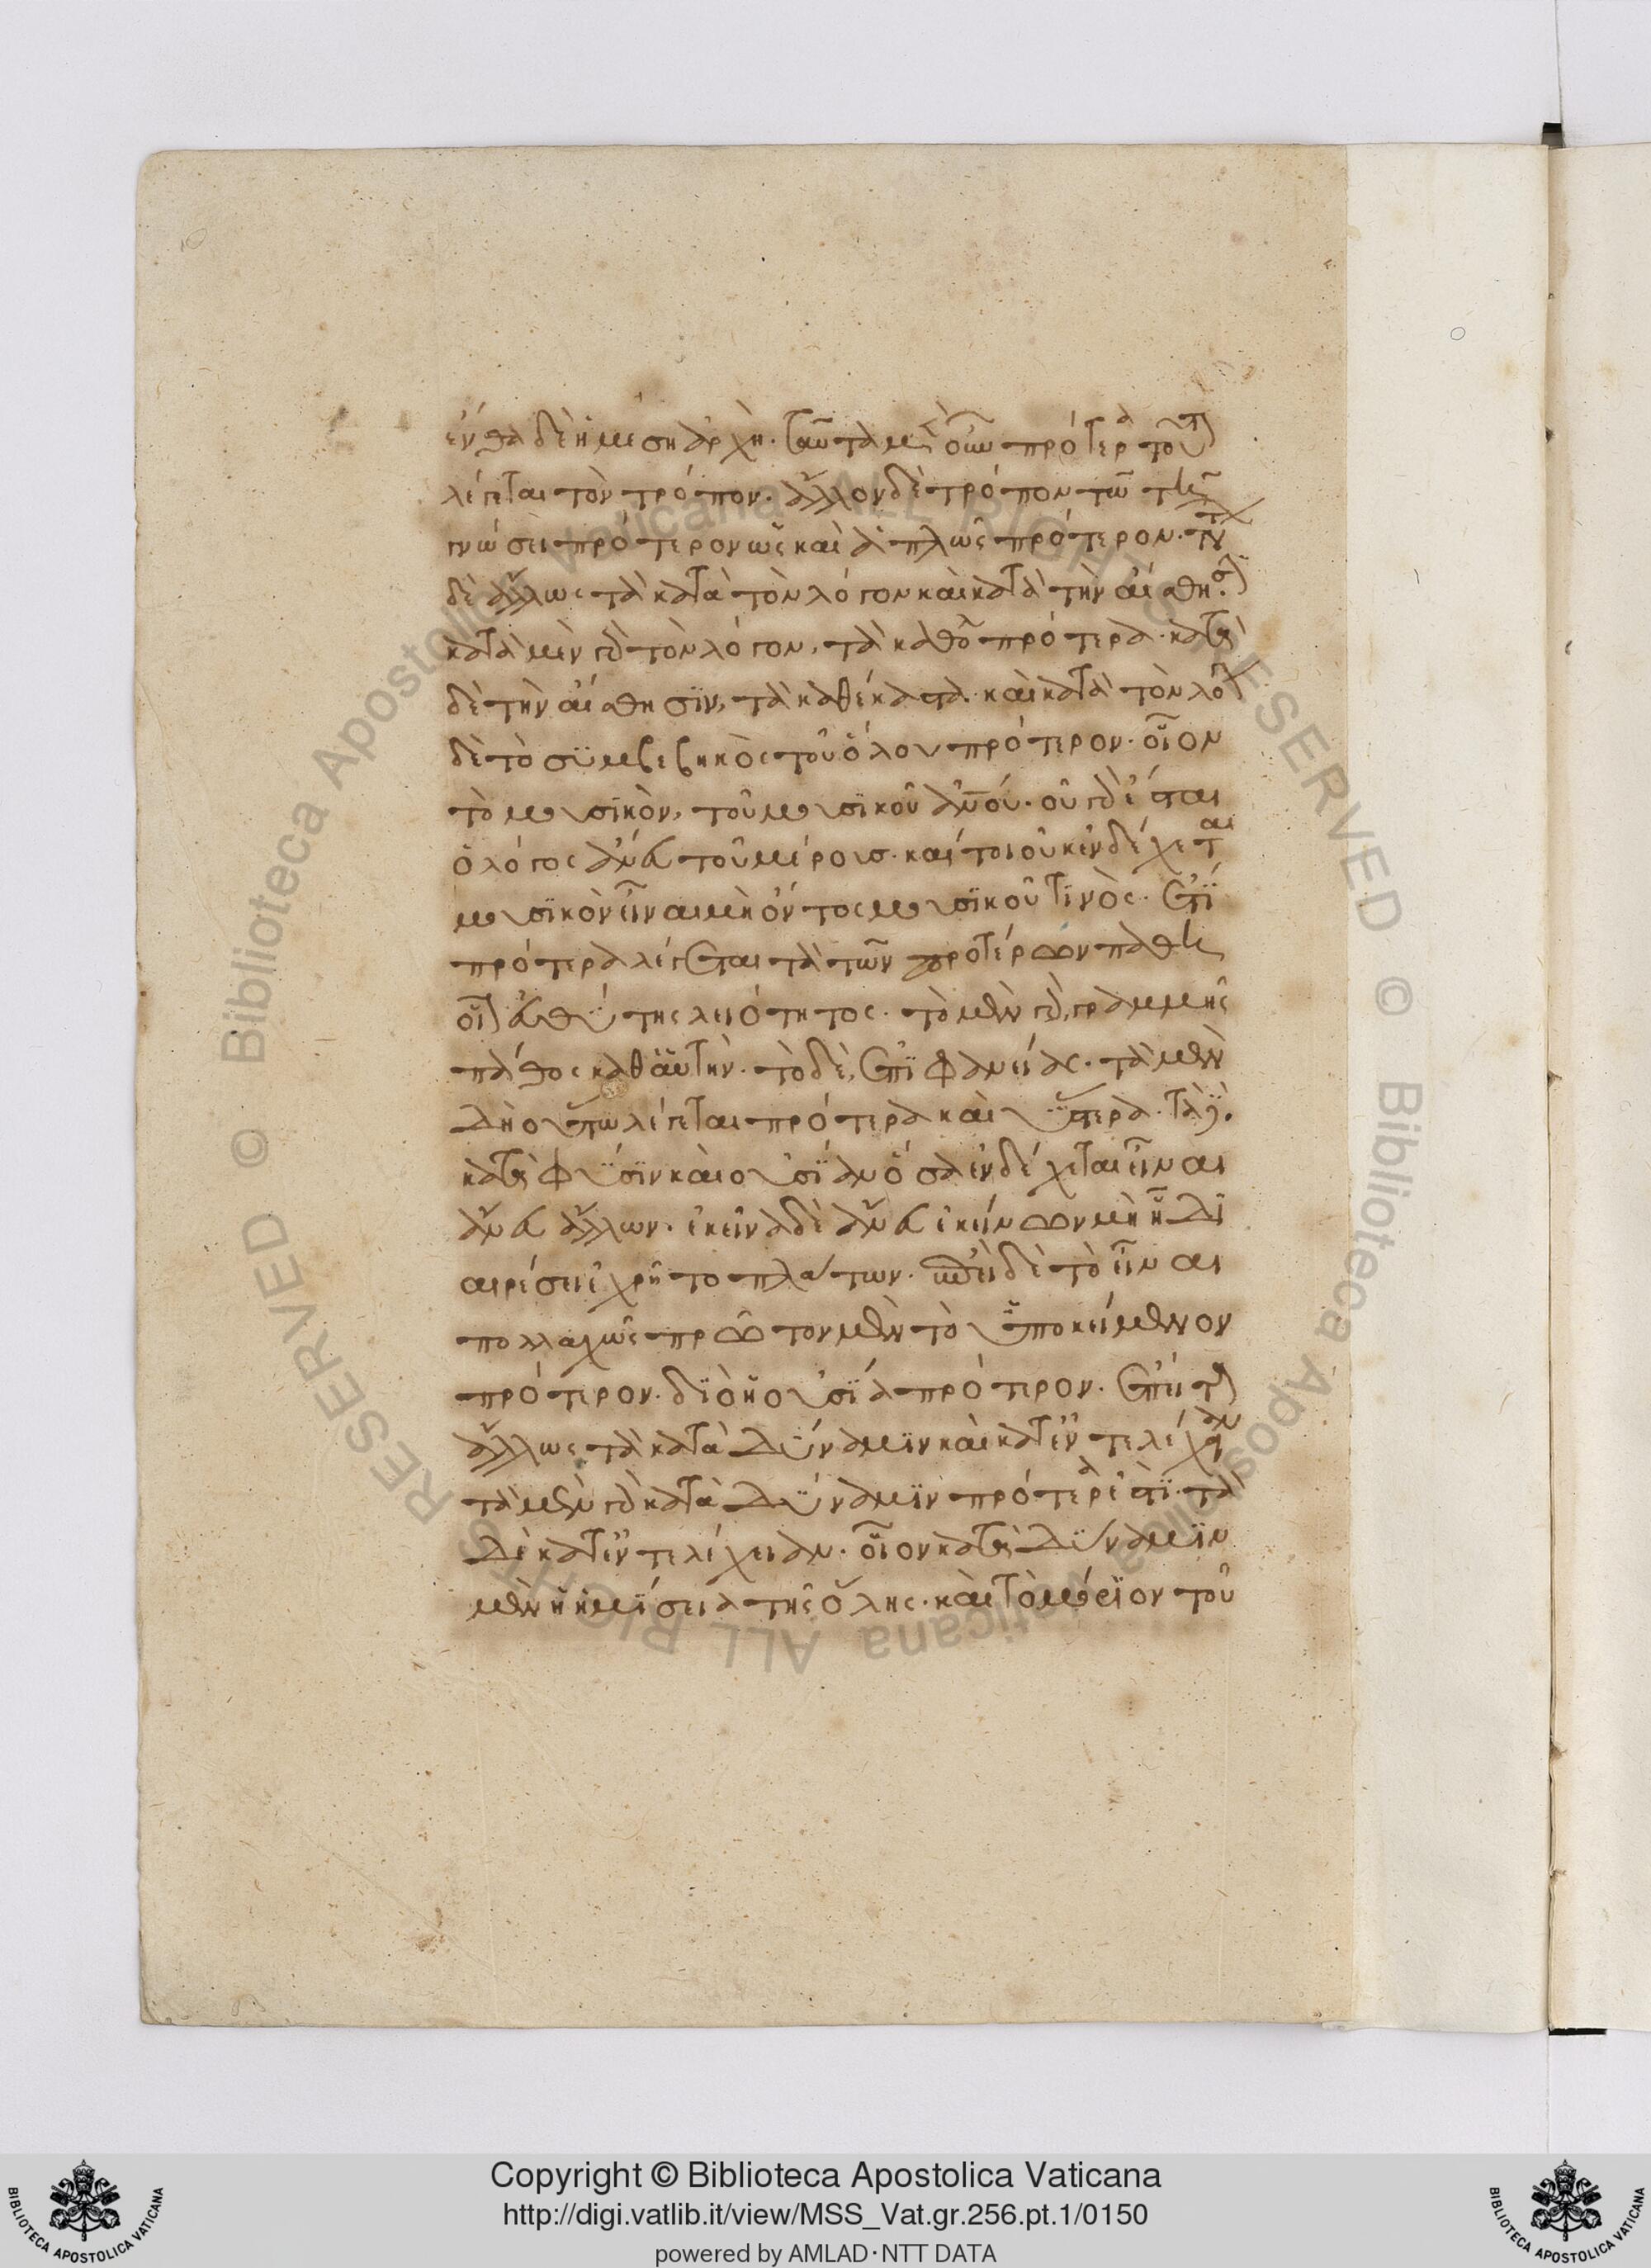 ἔνθα δὲ ἡ μέση ἀρχή. ταῦτα μὲν οὖν πρότερα τοῦτον
λέγεται τὸν τρόπον. ἄλλον δὲ τρόπον τὸ τῆ
γνώσει πρότερον ὡς καὶ ἁπλῶς πρότερον. τούτων
δὲ ἄλλως τὰ κατὰ τὸν λόγον καὶ κατὰ τὴν αἴσθησιν.
κατὰ μὲν γὰρ τὸν λόγον, τὰ καθόλου πρότερα. κατὰ
δὲ τὴν αἴσθησϊν, τὰ καθέκαστα. καὶ κατὰ τὸν λόγον
δὲ τὸ συμβεβηκὸς τοῦ ὅλου πρότερον. οἷον
τὸ μουσικὸν, τοῦ μουσϊκοῦ ἀνου. οὐ γὰρ ἔσται
ὁ λόγος ἄνευ τοῦ μέρουσ. καίτοι οὐκ ἐνδέχεται
μουσϊκὸν εἶναι μὴ ὄντος μουσϊκοῦ τϊνὸς. ἔτϊ
πρότερα λέγεται τὰ τῶν προτέρων πάθη
οἷον εὐθύτης λειότητος. τὸ μὲν γὰρ, γραμμῆς
πάθος καθ' αὑτὴν. τὸ δὲ, ἐπϊφανείας. τὰ μὲν
δὴ οὕτω λέγεται πρότερα καὶ ὕστερα. τὰ δὲ.
κατὰ φύσϊν καὶ οὐσϊαν ὅσα ἐνδέχεται εἶναι
ἄνευ ἄλλων. ἐκεῖνα δὲ ἄνευ ἐκείνων μὴ ἧ δϊ
αιρέσει ἐχρῆτο πλάτων. ἐπεὶ δὲ τὸ εἶναι
πολλαχῶς πρῶτον μὲν τὸ ὑποκείμενον
πρότερον. δϊὸ ἡ οὐσϊα πρότερον. ἔπειτα
ἄλλως τὰ κατὰ δύναμϊν καὶ κατ' ἐντελέχειαν
τὰ μὲν γὰρ κατὰ δύναμϊν πρότερά ἐστϊ. τὰ
δὲ κατ' ἐντελέχειαν. οἷον κατὰ δύναμϊν
μὲν ἡ ἡμϊσεια τῆς ὅλης. καὶ τὸ μόρϊον τοῦ
Copyright © Biblioteca Apostolica Vaticana
http://digi.vatlib.it/view/MSS_Vat.gr.256.pt.1/0150
powered by AMLAD·NTT DATA